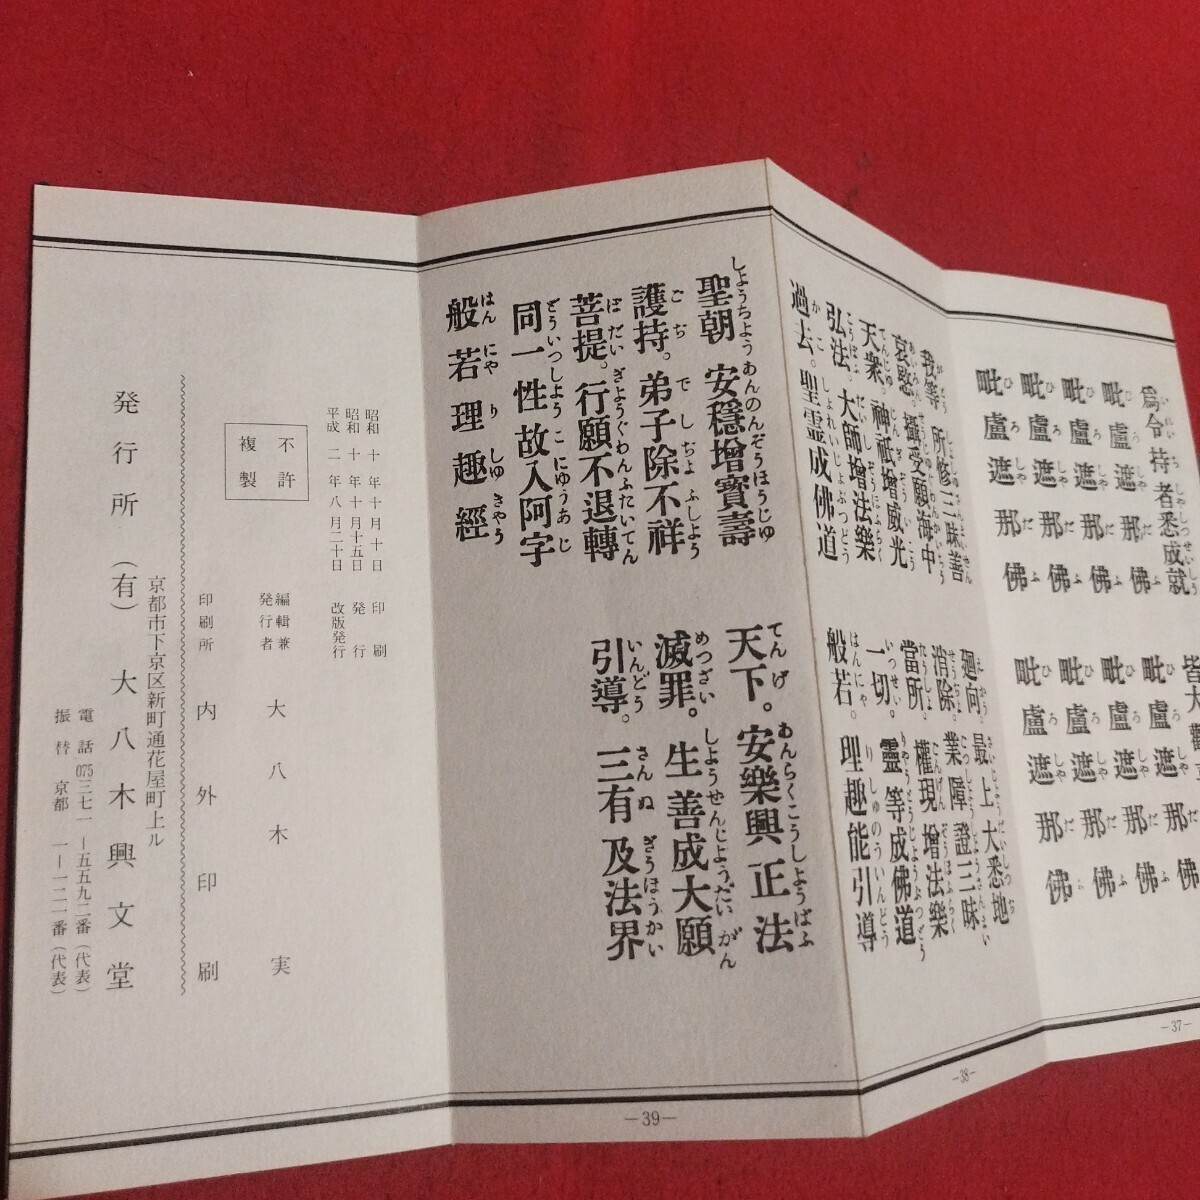 爲令持者悉成就
毗盧遮那佛
毗盧遮那佛
毗盧遮那佛
毗盧遮那佛
毗盧遮那佛
毗盧遮那佛
毗盧遮那佛
毗盧遮那佛
—37—
我等所修三昧善
哀愍攝受願海中
天衆。神祇增威光
弘法。大師增法樂
過去。聖靈成佛道
廻向。最上大悉地
消除。業障證三昧
當所。權現增法樂
一切。靈等成佛道
般若。理趣能引導
—38—
聖朝安穩增寶壽
護持。弟子除不祥
菩提。行願不退轉
同一性故入阿字
般若理趣經
天下。安樂興正法
滅罪。生善成大願
引導。三有及法界
—39—
昭和十年十月十日 印刷
昭和十年十月十五日 発行
平成二年八月二十日 改版発行
不許
複製
編輯兼
発行者 大八木実
印刷所 内外印刷
京都市下京区新町通花屋町上ル
発行所(有)大八木興文堂
電話075三七一―五五九二番(代表)
振替京都一―一二一番(代表)